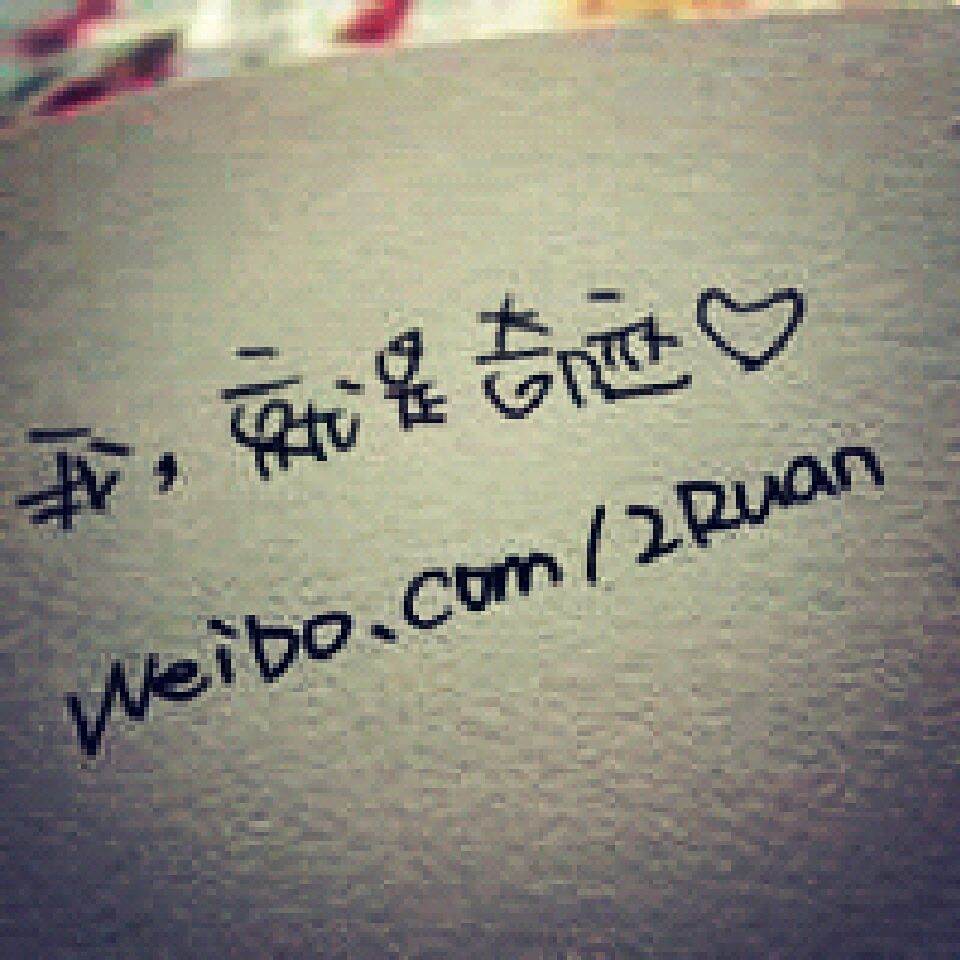 我，就是奇葩♡
Weibo.com/2Ruan